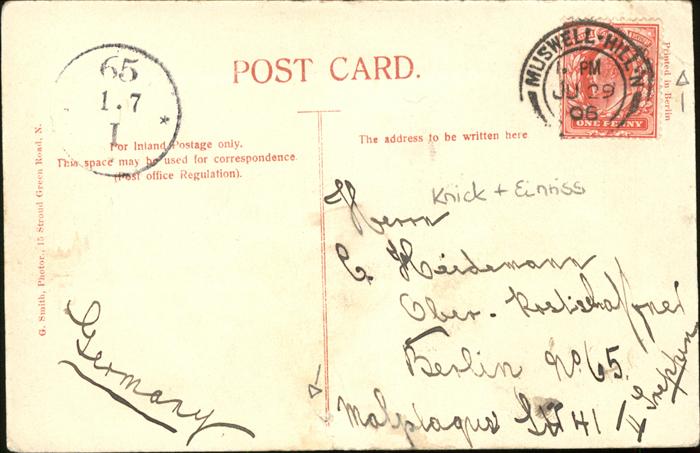 POST CARD.
65
1.7
1 *
MUSWELL-HILL.N
PM
JU 29
06
ONE PENNY
Printed in Berlin
For Inland Postage only.
This space may be used for correspondence
(Post office Regulation).
The address to be written here
G. Smith, Photor., 15 Stroud Green Road, N.
Knick + Einriss
Herrn
C. Heidemann
Ober-Postschaffner
Berlin No 65.
Malplaquet 41
4 Treppen
Germany